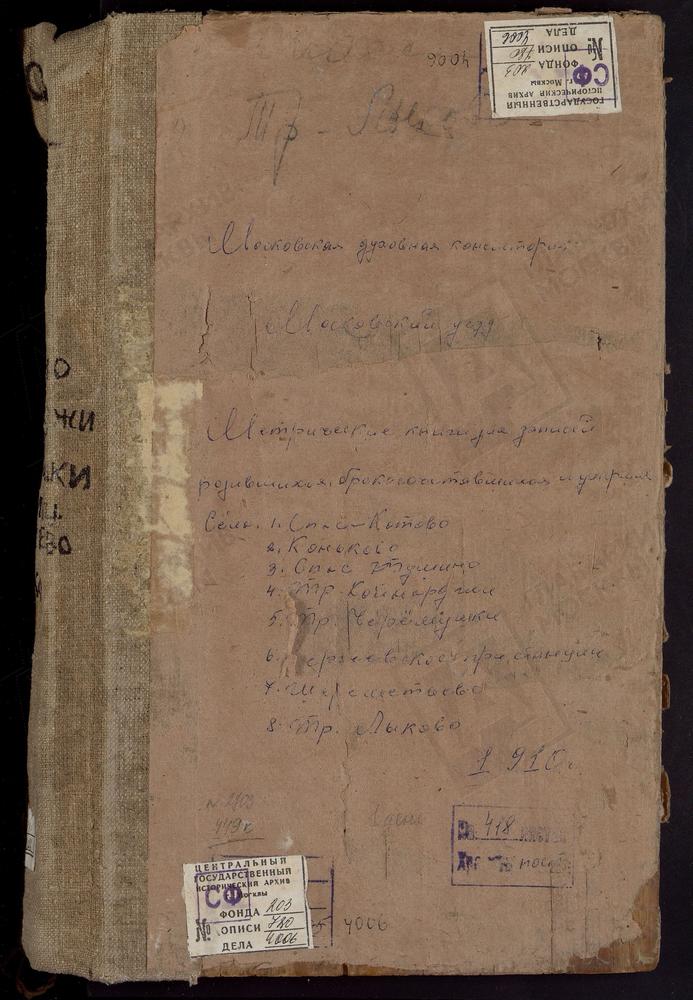 4006
ГОСУДАРСТВЕННЫЙ
ИСТОРИЧЕСКИЙ АРХИВ
г. Москвы
СФ
ФОНДА 203
№ ОПИСИ 780
ДЕЛА 4006
Тр -
Московская духовная консистория
Московский уезд
Метрические книги для записей
родившихся, бракосочетавшихся и умерших
Село. 1. Спас-Котово
2. Коньково
3. Спас Тушино
4. Тр. Кайнарджи
5. Тр. Черёмушки
6. станции
7. Шереметьево
8. Тр. Лыково
1910.
ЖИ
КИ
418
ЦЕНТРАЛЬНЫЙ
ГОСУДАРСТВЕННЫЙ
ИСТОРИЧЕСКИЙ АРХИВ
г. Москвы
СФ
ФОНДА 203
№ ОПИСИ 780
ДЕЛА 4006
4006